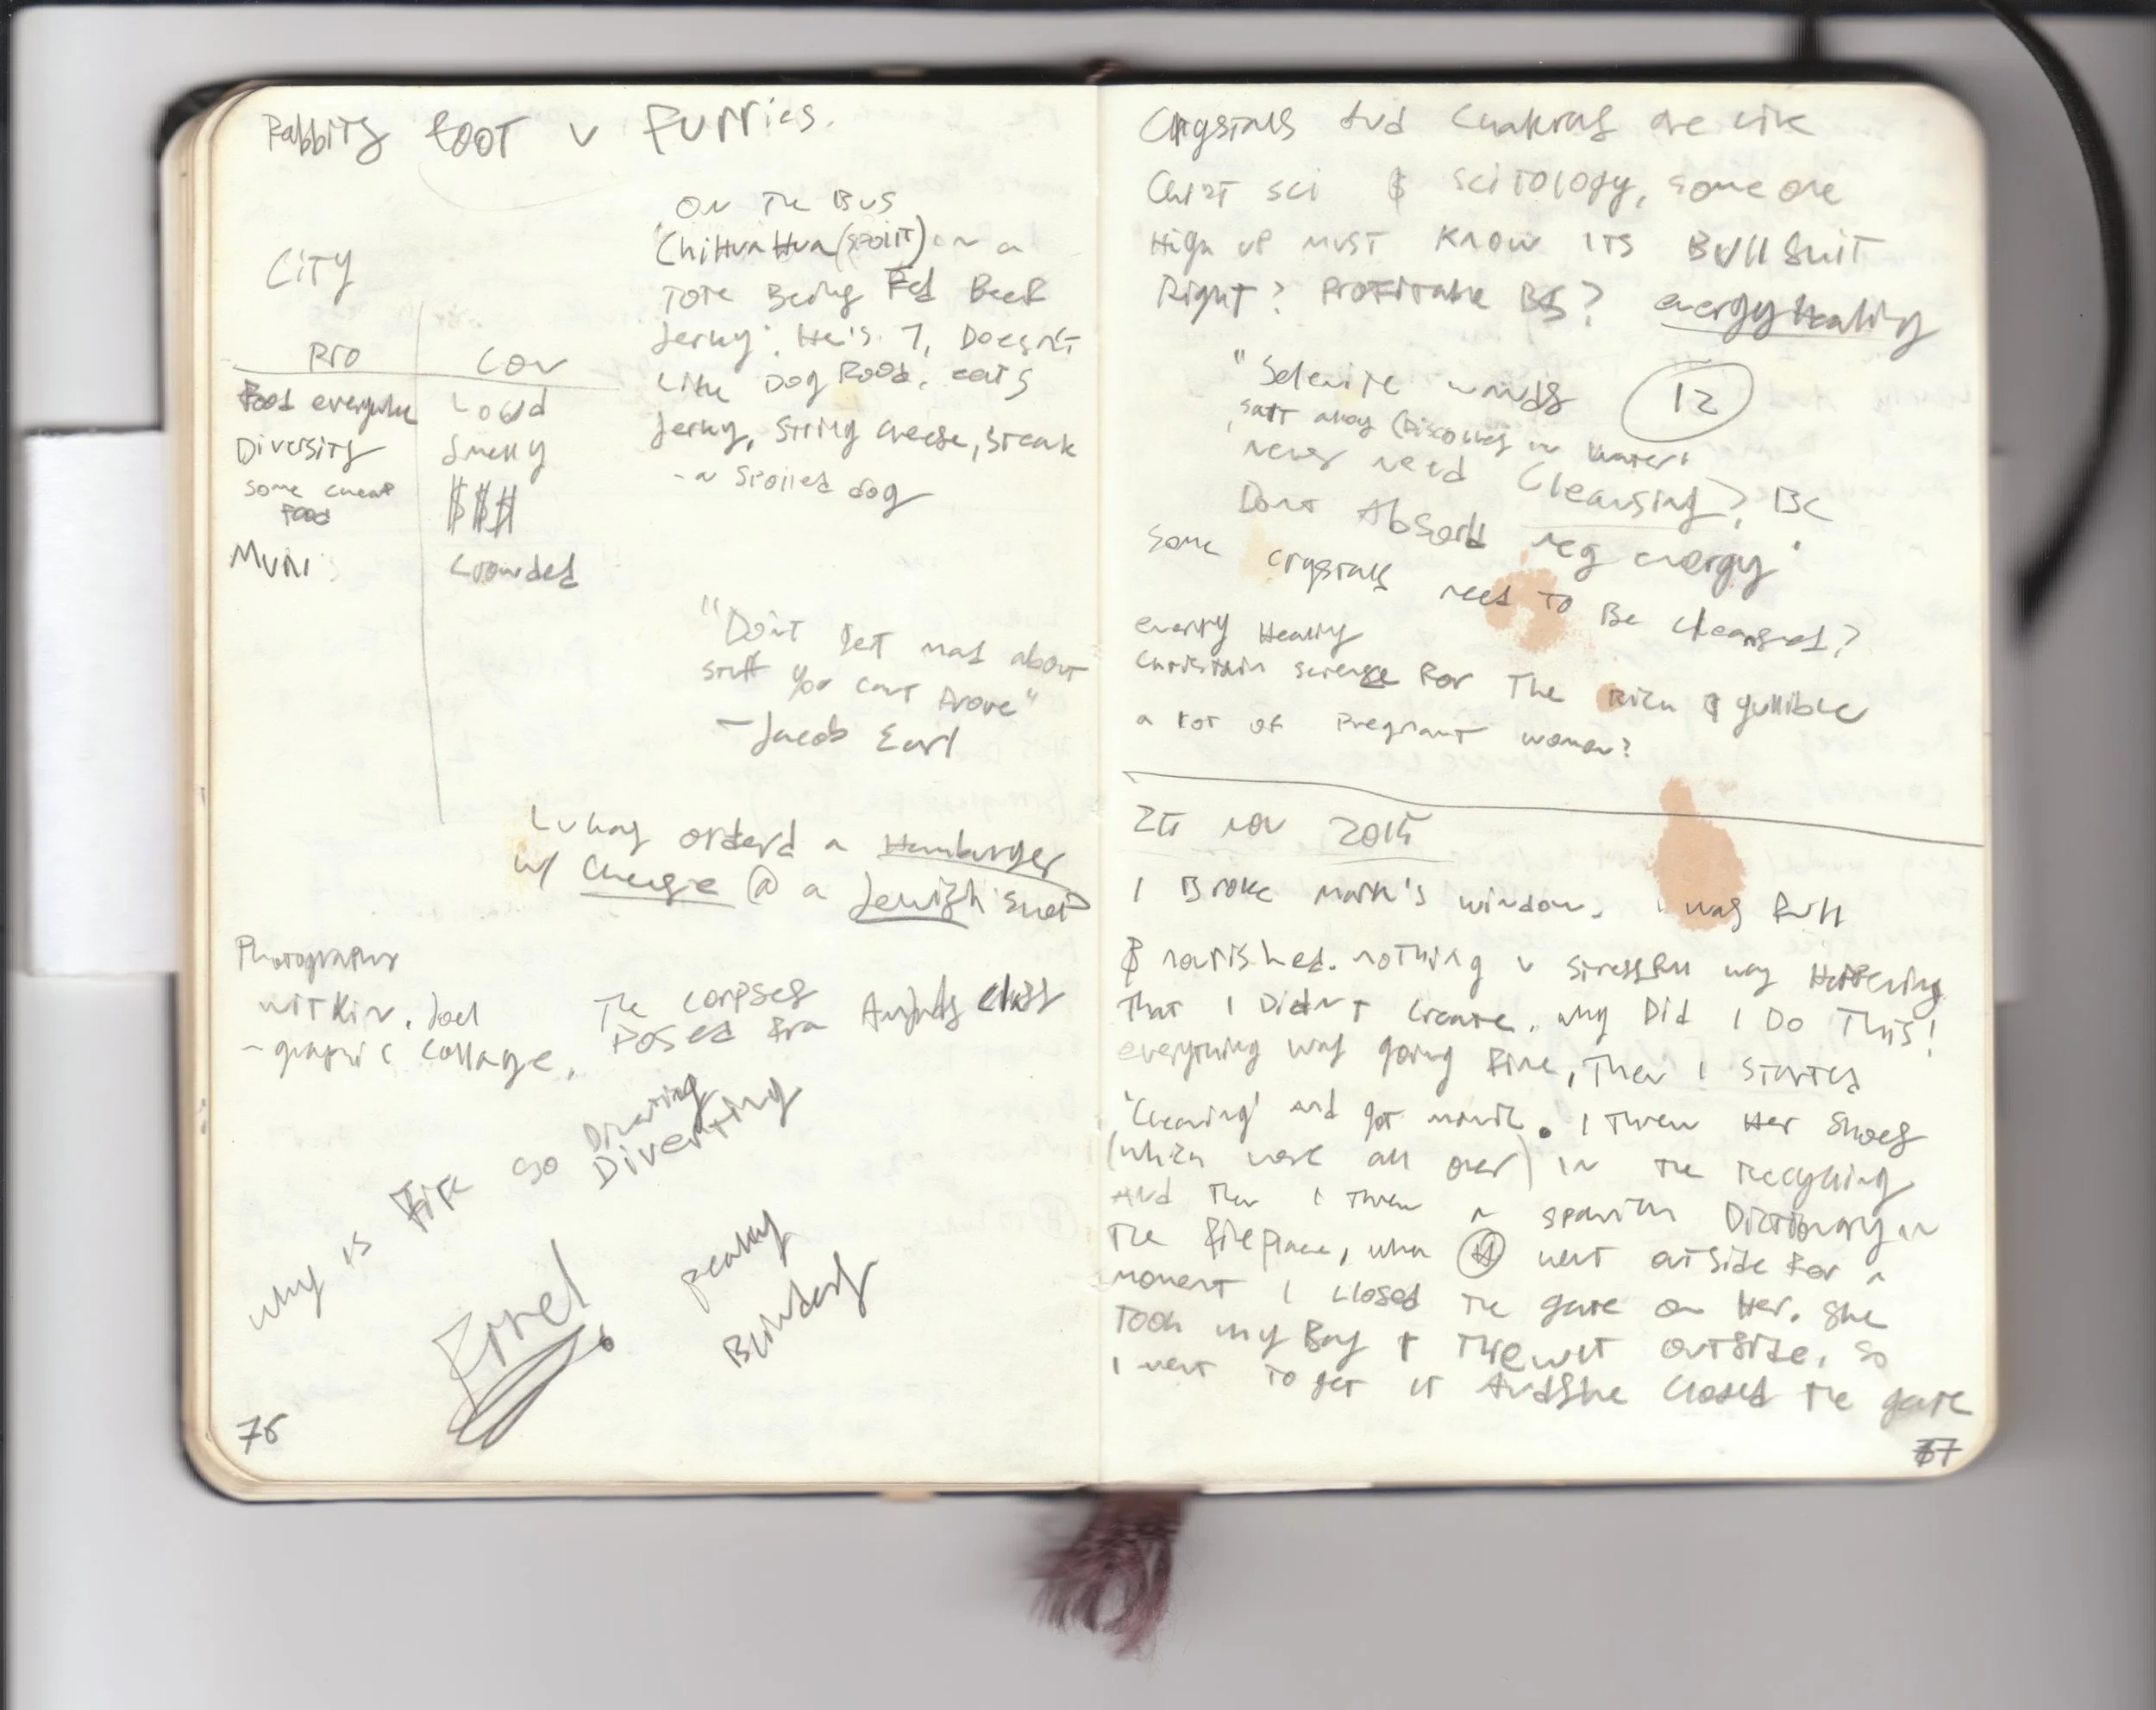 Rabbits foot v furries.
City
Pro Con
Food everywhere Loud
Diversity Smelly
Some cheap $$$
Food
Muni Crowded
On the Bus
Chihuahua (spoilt) in a
Tote Being Fed Beef
Jerky. He's 7, Doesn't
Like Dog Food, eats
Jerky, String cheese, Steak
- a spoiled dog
"Don't get mad about
stuff you cant Prove"
- Jacob Earl
Lukas orderd a Hamburger
w/ Cheese @ a Jewish shop
Photography
Witkin, Joel
- graphic collage,
The corpses
Posed for
class
Why is Fire so Diverting
Diverting
Fire!
peaky
Blinders
76
Crystals and Chakras are like
Christ sci & scitology, some one
High up must know its Bullshit
Right? Profitable BS? energy Healing
"Selenite wands 12
salt alloy (Discolves in Water)
never need Cleansing? BC
Dont Absorb neg energy"
Some crystals need to Be cleansed?
energy Healing
Christain science For The Rich & gullible
a lot of Pregnant women?
25 nov 2015
I Broke Mark's window. I was full
& nourished. nothing v stressful was Happening
That I Didn't create. why Did I Do This!
everything was going Fine, Then I started
'Cleaning' and got manic. I Threw Her Shoes
(which were all over) in the recycling
And then I threw a spanish Dictionary in
The fireplace, when H went outside for a
moment I closed the gate on Her. She
Took my Bag & Threw it outside, so
I went to get it And She Closed the gate
77